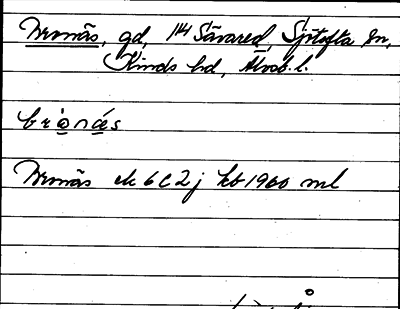 Bronäs, gd, 1/4 Sävared, Sjötofta sn,
Kinds hd, Älvsb. l.
brònás
Bronäs ek 6C2j kb 1960 ml